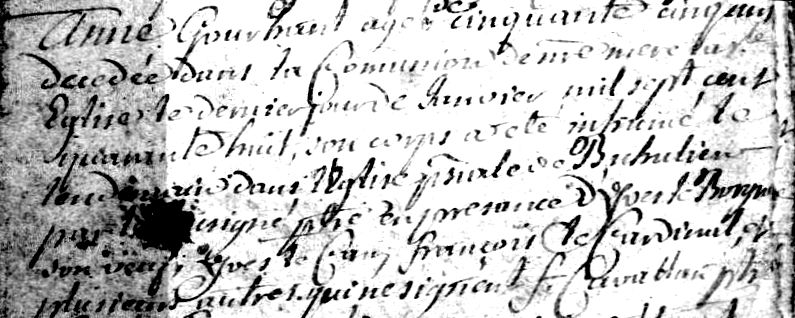 Anne Gourhant agée de cinquante cinq ans
decedée dans la Communion de nre mere la ste
Eglise le dernier jour de Janvier mil sept cent
quarante huit, son corps a eté inhumé le
lendemain dans l'Eglise pnale de Buhulien
par le signé ptre en presance d'Yves le
son veuf, Yves le francois le Cardinal, et
plusieurs autres qui ne signent f. ptre